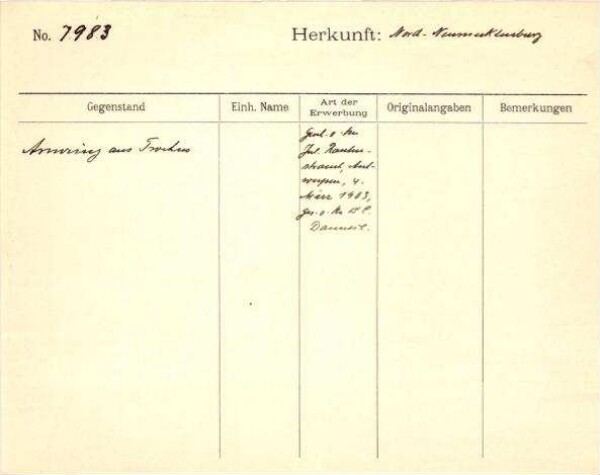 No. 7983
Herkunft: Nord-Neumecklenburg
Gegenstand
Einh. Name
Art der
Erwerbung
Originalangaben
Bemerkungen
Armring aus Trochus
Jul.
Ant-
werpen, 4.
März 1903,